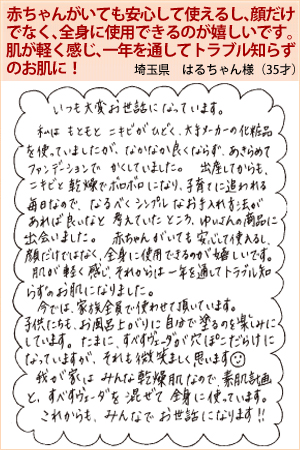 赤ちゃんがいても安心して使えるし、顔だけ
でなく、全身に使用できるのが嬉しいです。
肌が軽く感じ、一年を通してトラブル知らず
のお肌に！
埼玉県　はるちゃん様（35才）
いつも大変お世話になっています。
私は もともと ニキビが ひどく、大手メーカーの化粧品
を使っていましたが、なかなか良くならず、あきらめて
ファンデーションで かくしていました。 出産してからも、
ニキビと 乾燥でボロボロになり、子育てに追われる
毎日なので、なるべくシンプルなお手入れ方法が
あれば良いなと 考えていたところ、ゆいさんの商品に
出会いました。 赤ちゃんがいても安心して使えるし、
顔だけではなく、全身に使用できるのが嬉しいです。
肌が軽く感じ、それからは 一年を通してトラブル知
らずのお肌になりました。
今では、家族全員で使わせて頂いています。
子供たちも、お風呂上がりに自分で塗るのを楽しみに
しています。たまに、すべすべヴェーダが穴ぽこだらけに
なっていますが、それも微笑ましく思います
我が家は みんな乾燥肌なので、素肌計画
と、すべすべヴェーダを 混ぜて 全身に使っています。
これからも、みんなで お世話になります!!